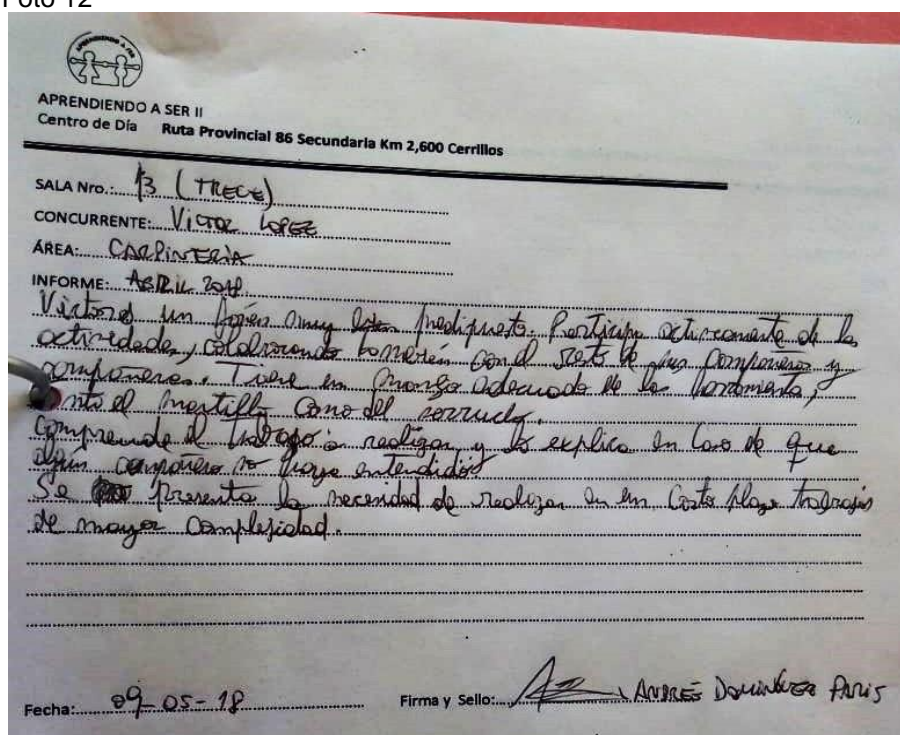 Foto 12
APRENDIENDO A SER
APRENDIENDO A SER II
Centro de Día Ruta Provincial 86 Secundaria Km 2,600 Cerrillos
SALA Nro.: 13 (TRECE)
CONCURRENTE: VICTOR LOPEZ
ÁREA: CARPINTERÍA
INFORME: ABRIL 2018.
Victor es un joven muy predispuesto. Participa activamente de las
actividades, colaborando también con el resto de sus compañeros y
compañeras. Tiene un manejo adecuado de las herramientas,
tanto el martillo como del serrucho.
Comprende el trabajo a realizar, y lo explica en caso de que
algún compañero no haya entendido.
Se presenta la necesidad de realizar en un corto plazo trabajos
de mayor complejidad.
Fecha: 09-05-18 Firma y Sello: ANDRÉS DOMINGUEZ PARIS